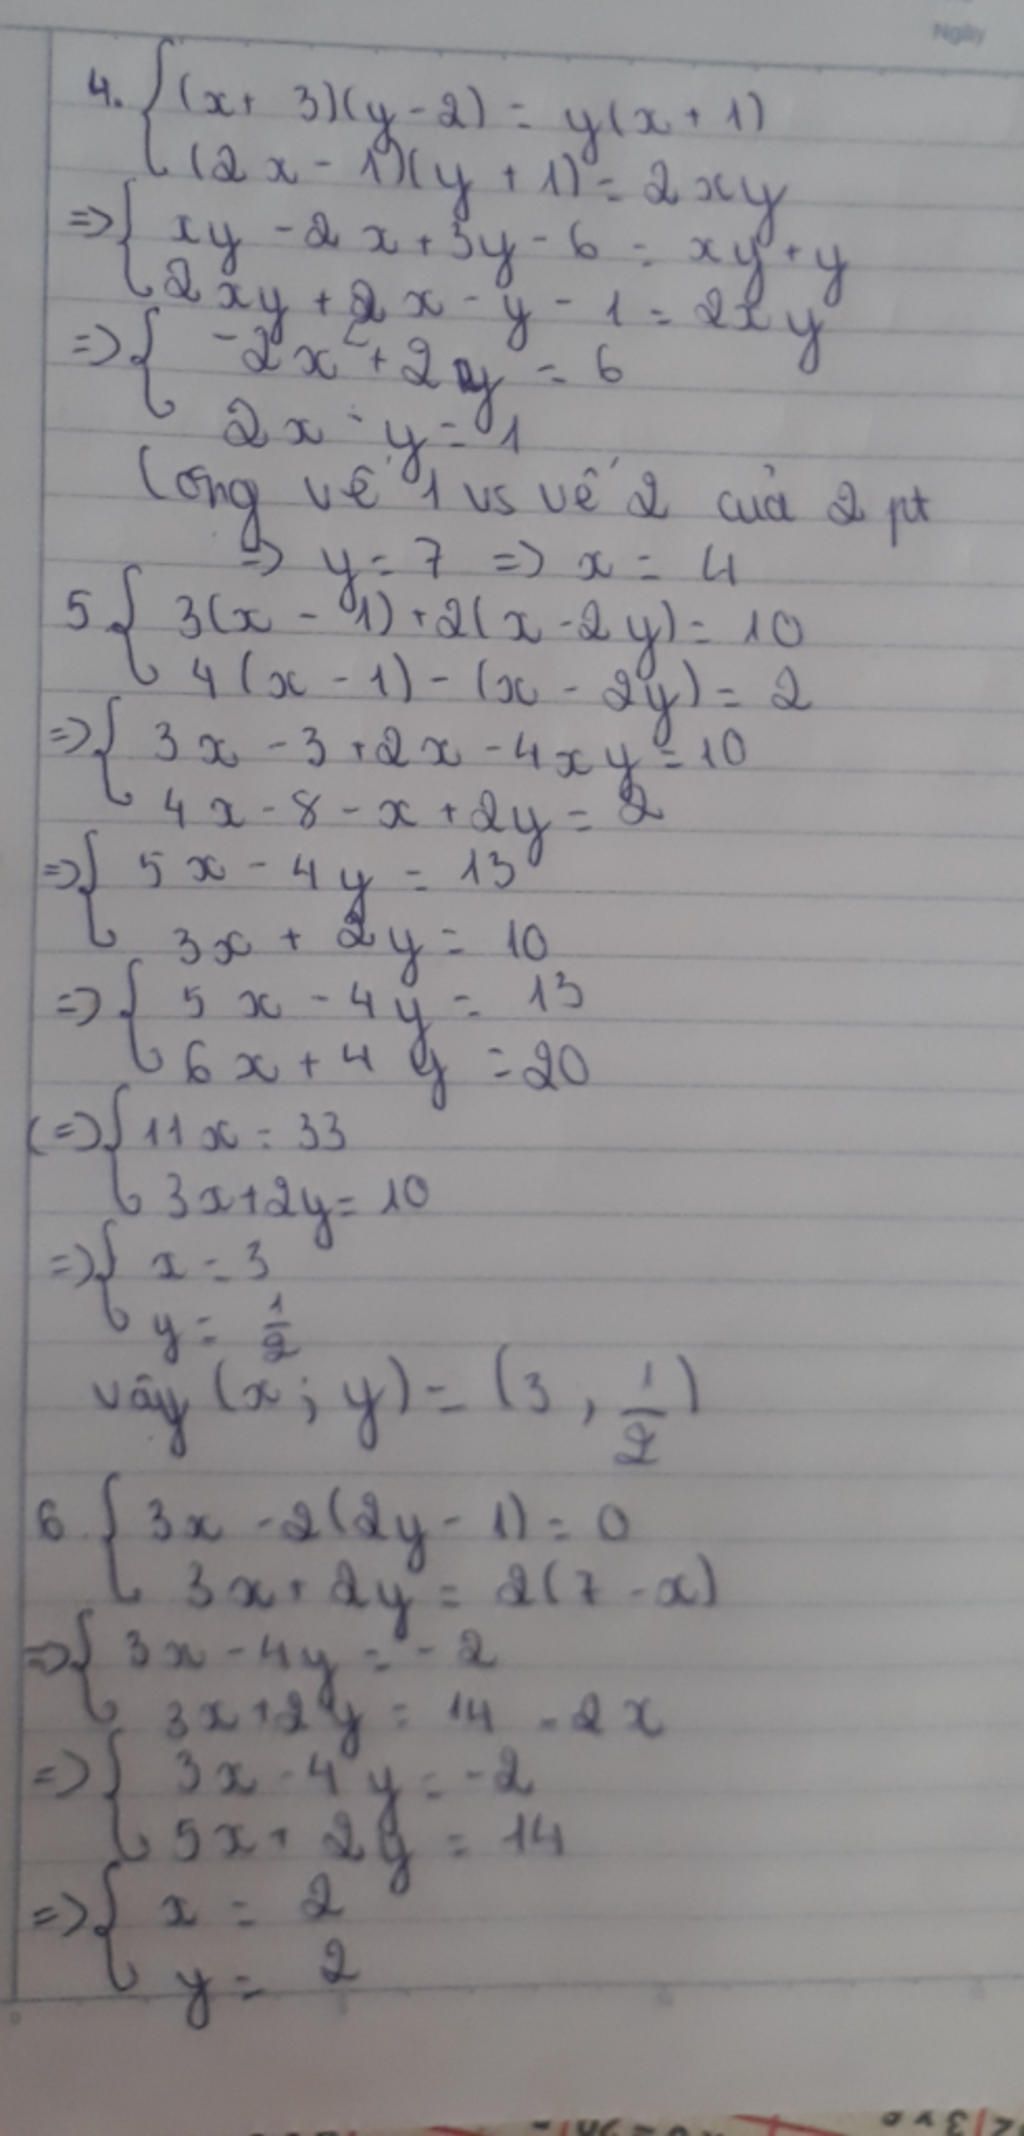 Ngày
4. { (x + 3)(y - 2) = y(x + 1)
(2x - 1)(y + 1) = 2xy
=> { xy - 2x + 3y - 6 = xy + y
2xy + 2x - y - 1 = 2xy
=> { -2x + 2y = 6
2x - y = 1
Cộng vế 1 vs vế 2 của 2 pt
=> y = 7 => x = 4
5 { 3(x - 1) + 2(x - 2y) = 10
4(x - 1) - (x - 2y) = 2
=> { 3x - 3 + 2x - 4xy = 10
4x - 8 - x + 2y = 2
=> { 5x - 4y = 13
3x + 2y = 10
=> { 5x - 4y = 13
6x + 4y = 20
(=> { 11x = 33
3x + 2y = 10
=> { x = 3
y = 1/2
vậy (x; y) = (3, 1/2)
6. { 3x - 2(2y - 1) = 0
3x + 2y = 2(7 - x)
=> { 3x - 4y = -2
3x + 2y = 14 - 2x
=> { 3x - 4y = -2
5x + 2y = 14
=> { x = 2
y = 2